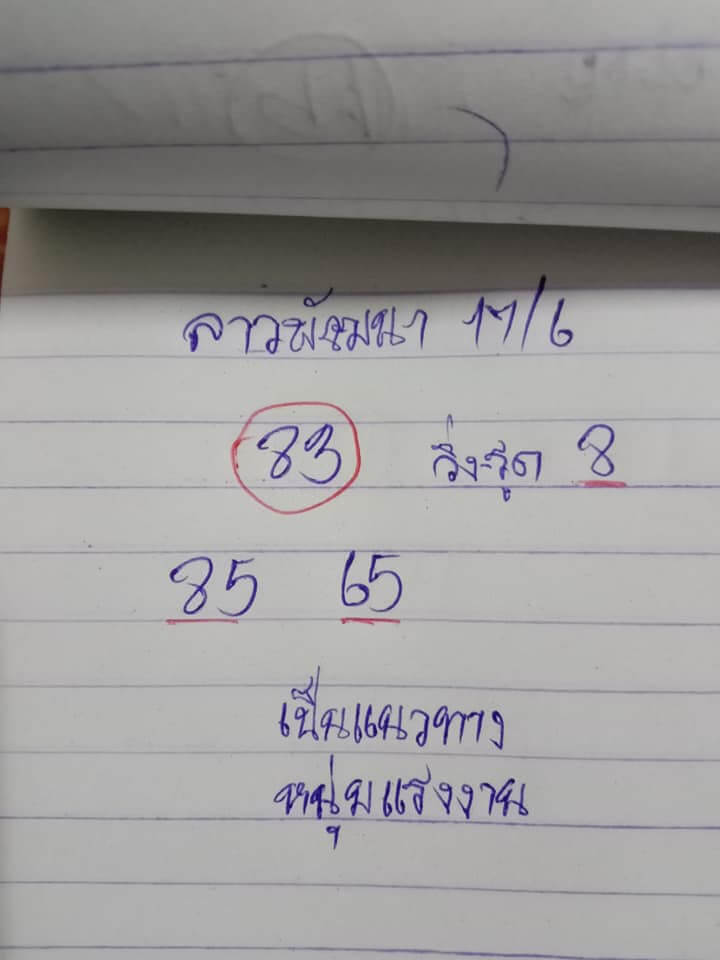 ลาวพัฒนา 17/6
83 วิ่งรูด 8
85 65
เป็นแนวทาง
หนุ่มแรงงาน